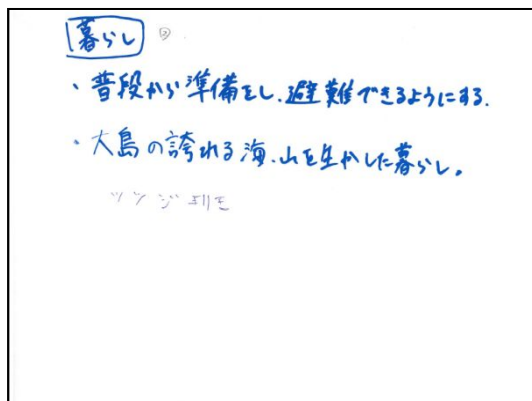 暮らし ②
・普段から準備をし、避難できるようにする。
・大島の誇れる海、山を生かした暮らし。